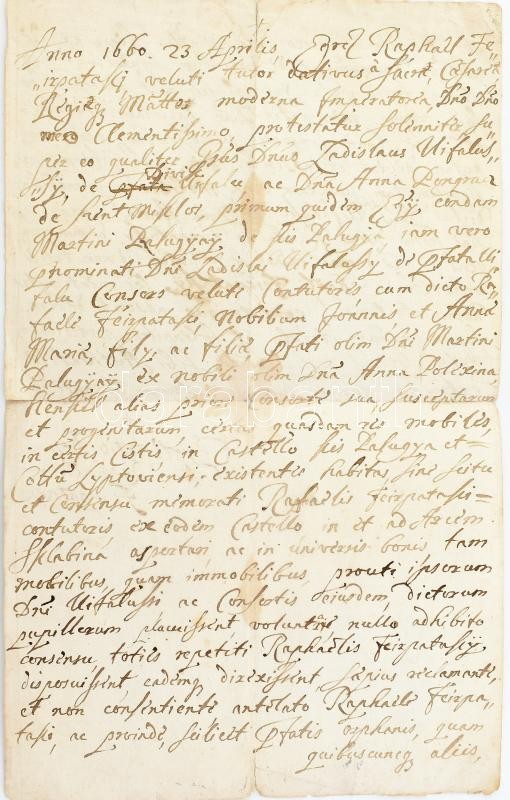 Anno 1660. 23 Aprilis, Egre: Raphaël Fe„
„irpatasi veluti tutor dativus à Sacra Cæsarea
Regiaq Mattæ moderna Imperatorea, Dno Dno
mero Clementissimo, protestatur solenniter su„
per eo qualiter Grãs Dnus Ladislaus Uifalus„
„sy, de Divék Uifalu ac Dna Anna Pongracz
de Szent Miklos, primum quidem Egy condam
Martini Palugyay de kis Palugya, iam vero
pnominati Dni Ladislai Uifalussy de pfata Ui
falu Consors veluti Contutores cum dicto Ra„
faele Feirpatasi, Nobilium Joannis et Annæ
Mariæ, fily, ac filiæ pfati olim Dni Martini
Palugyay, ex nobili olim Dna Anna Polexina
alias priore consorte sua, susceptarum
et progenitarum certas quasdam res mobiles
in certis Cistis in Castello kis Palugya et=
Cottu Lyptoviensi existentes habitas sine scitu
et Consensu memorati Rafaelis feirpatasi=
contutoris, ex eodem Castello in et ad Arcem
Sklabina asportari, ac in universis bonis tam
mobilibus, quam immobilibus, prouti ipsorum
Dni Uifalussi ac Consortis eiusdem, dictorum
pupillorum placuissent voluntati nullo adhibito
consensu, toties repetiti Raphaelis Feirpatasy
disposuissent eademq direxissent, sæpius reclamante,
et non consentiente antelato Raphaele Feirpa„
tasi, ac proinde, scilicet pfatis orphanis, quam
quibuscunq aliis,